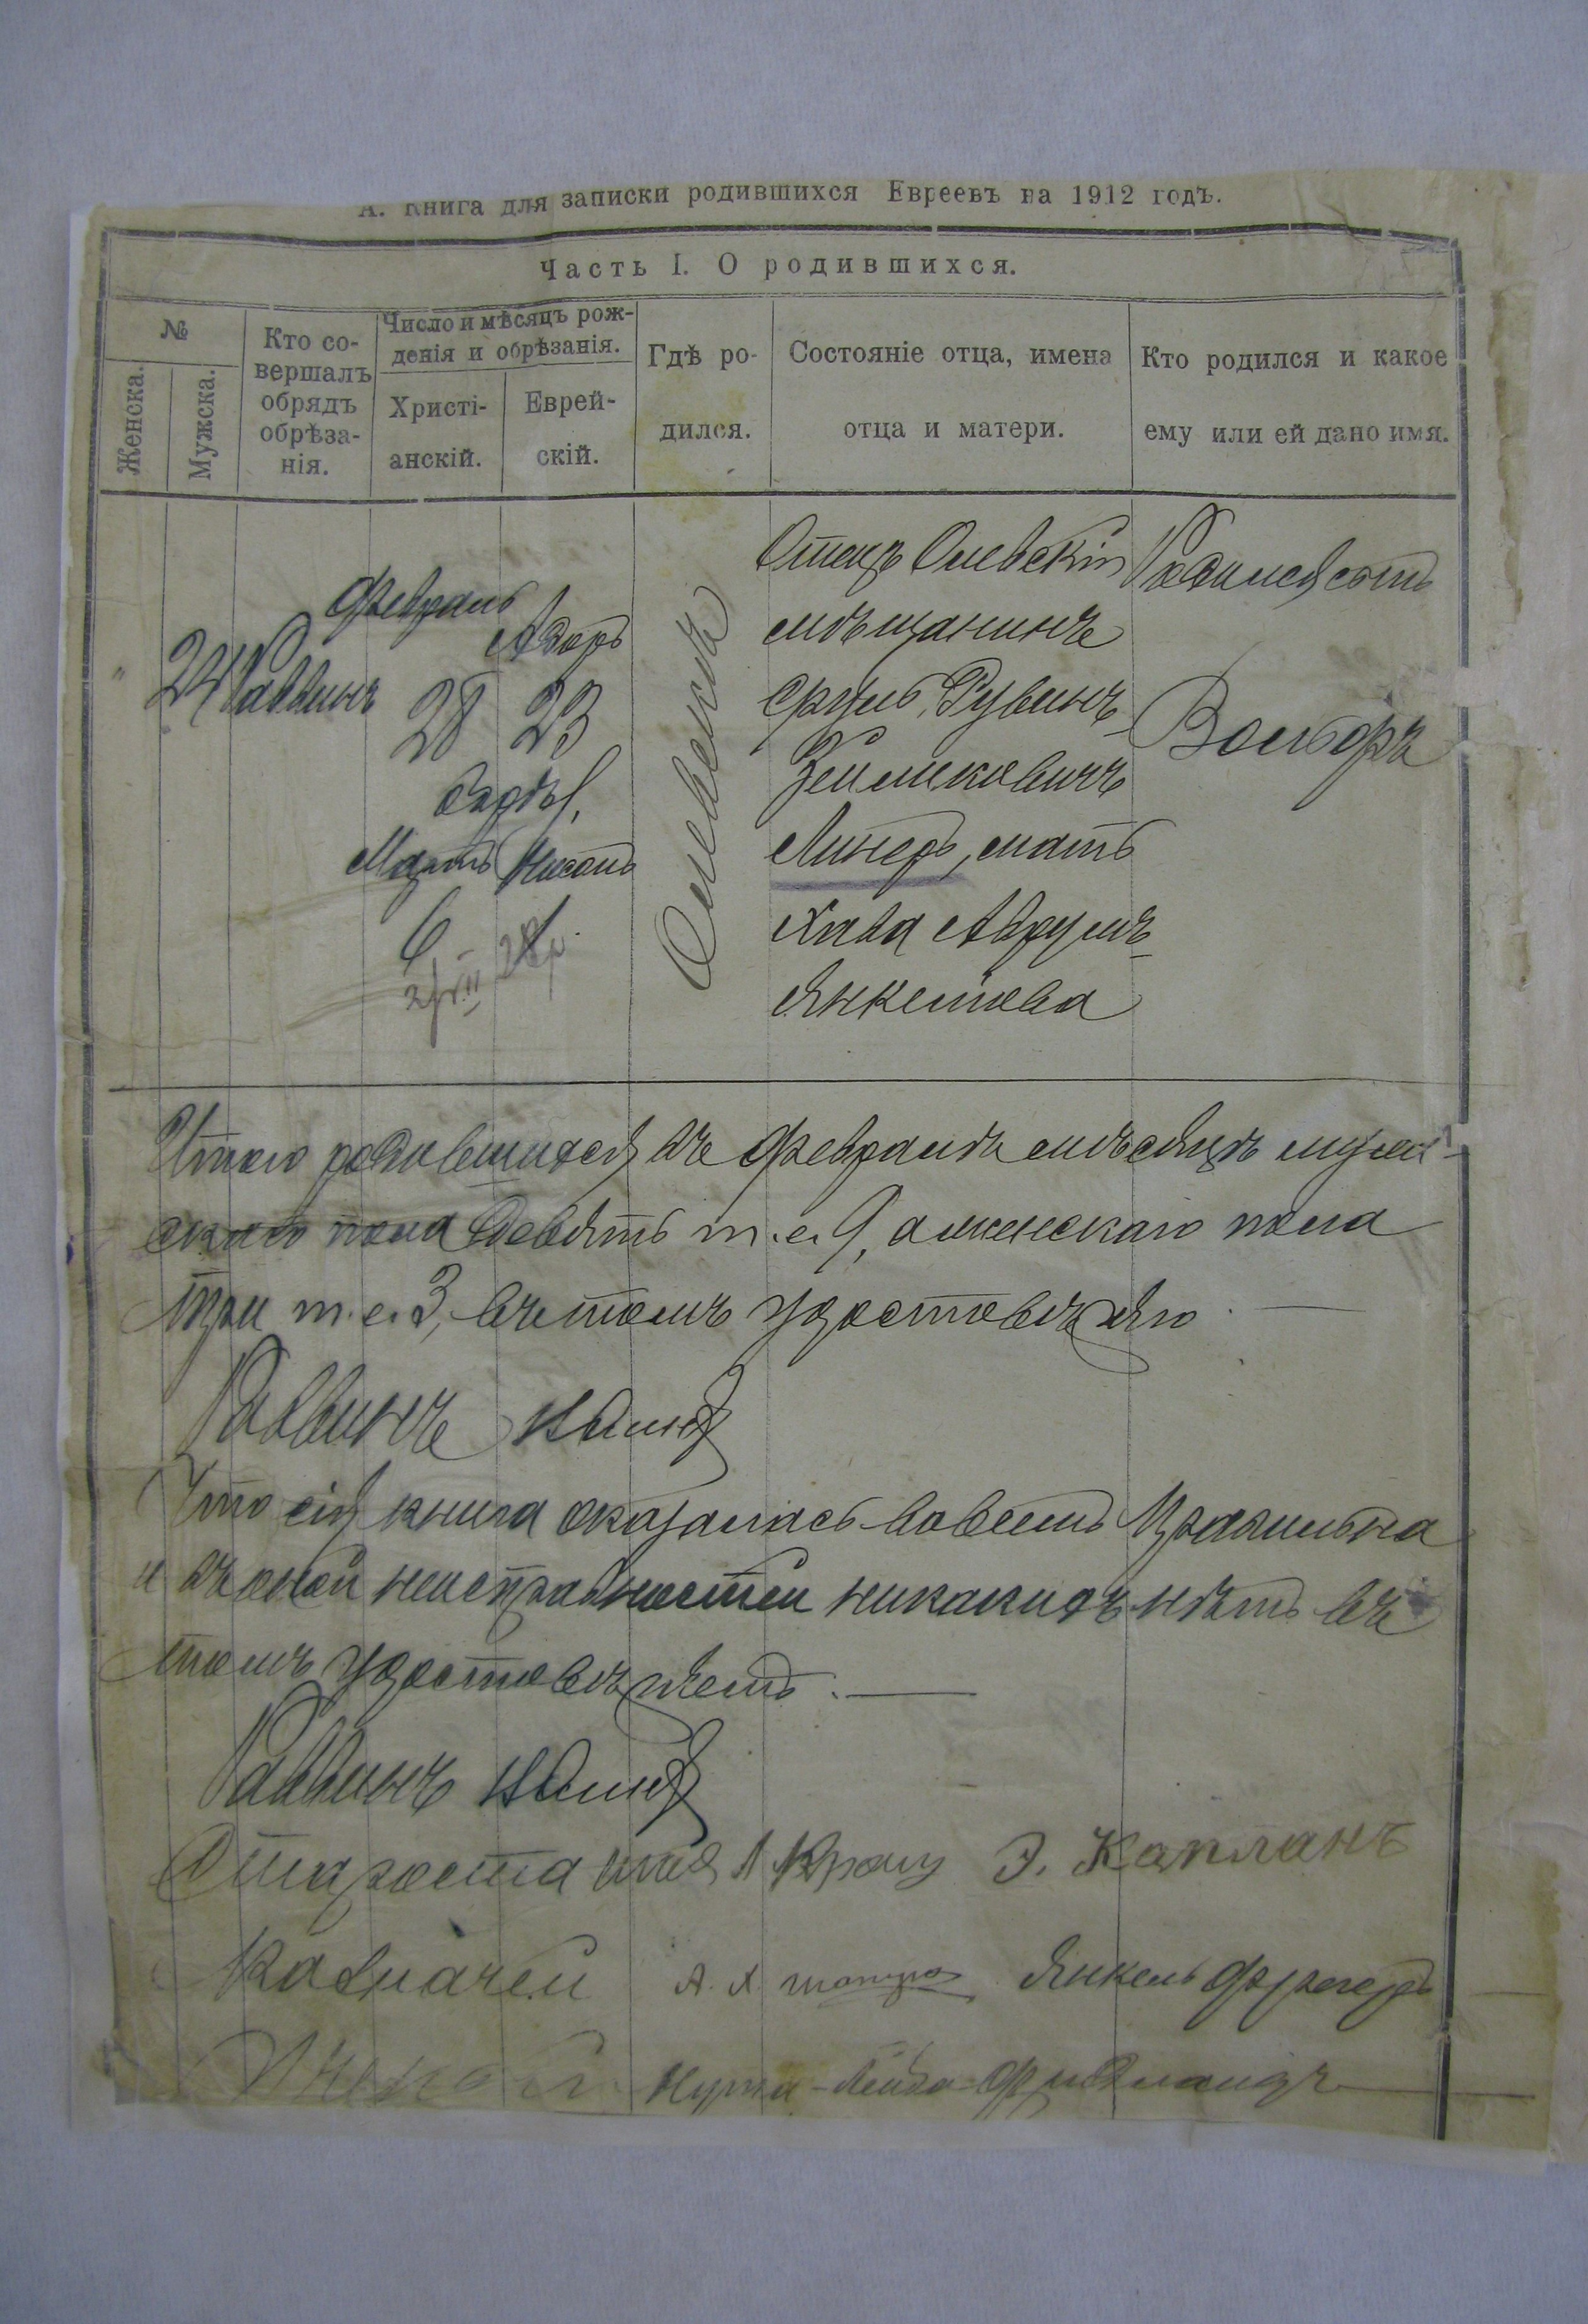 А. Книга для записки родившихся Евреевъ на 1912 годъ.
Часть I. О родившихся.
№
Женска.
Мужска.
Кто со-
вершалъ
обрядъ
обрѣза-
нія.
Число и мѣсяцъ рож-
денія и обрѣзанія.
Христі-
анскій.
Еврей-
скій.
Гдѣ ро-
дился.
Состояніе отца, имена
отца и матери.
Кто родился и какое
ему или ей дано имя.
24
Раввинъ
Февраль
28
Адаръ
23
обрѣз.
Мартъ
6
Нисанъ
Олевскъ
Отецъ Олевскій
мѣщанинъ
Сруль, Рувинъ-
Зейликовичъ
Линеръ, мать
Хава Аврумъ-
Янкелѣва
Родился сынъ
Вольфъ
Итого родившихся въ Февралѣ мѣсяцѣ муже-
скаго пола девять т.е. 9, а женскаго пола
три т.е. 3, въ томъ удостовѣряю
Раввинъ
Что сія книга оказалась вовсемъ правильна
и въ оной неисправностей никакихъ нѣтъ въ
томъ удостовѣряемъ.
Раввинъ
Староста Э. Капланъ
Казначей А. Х. Янкель
Ученый Нута-Лейба Фридландъ